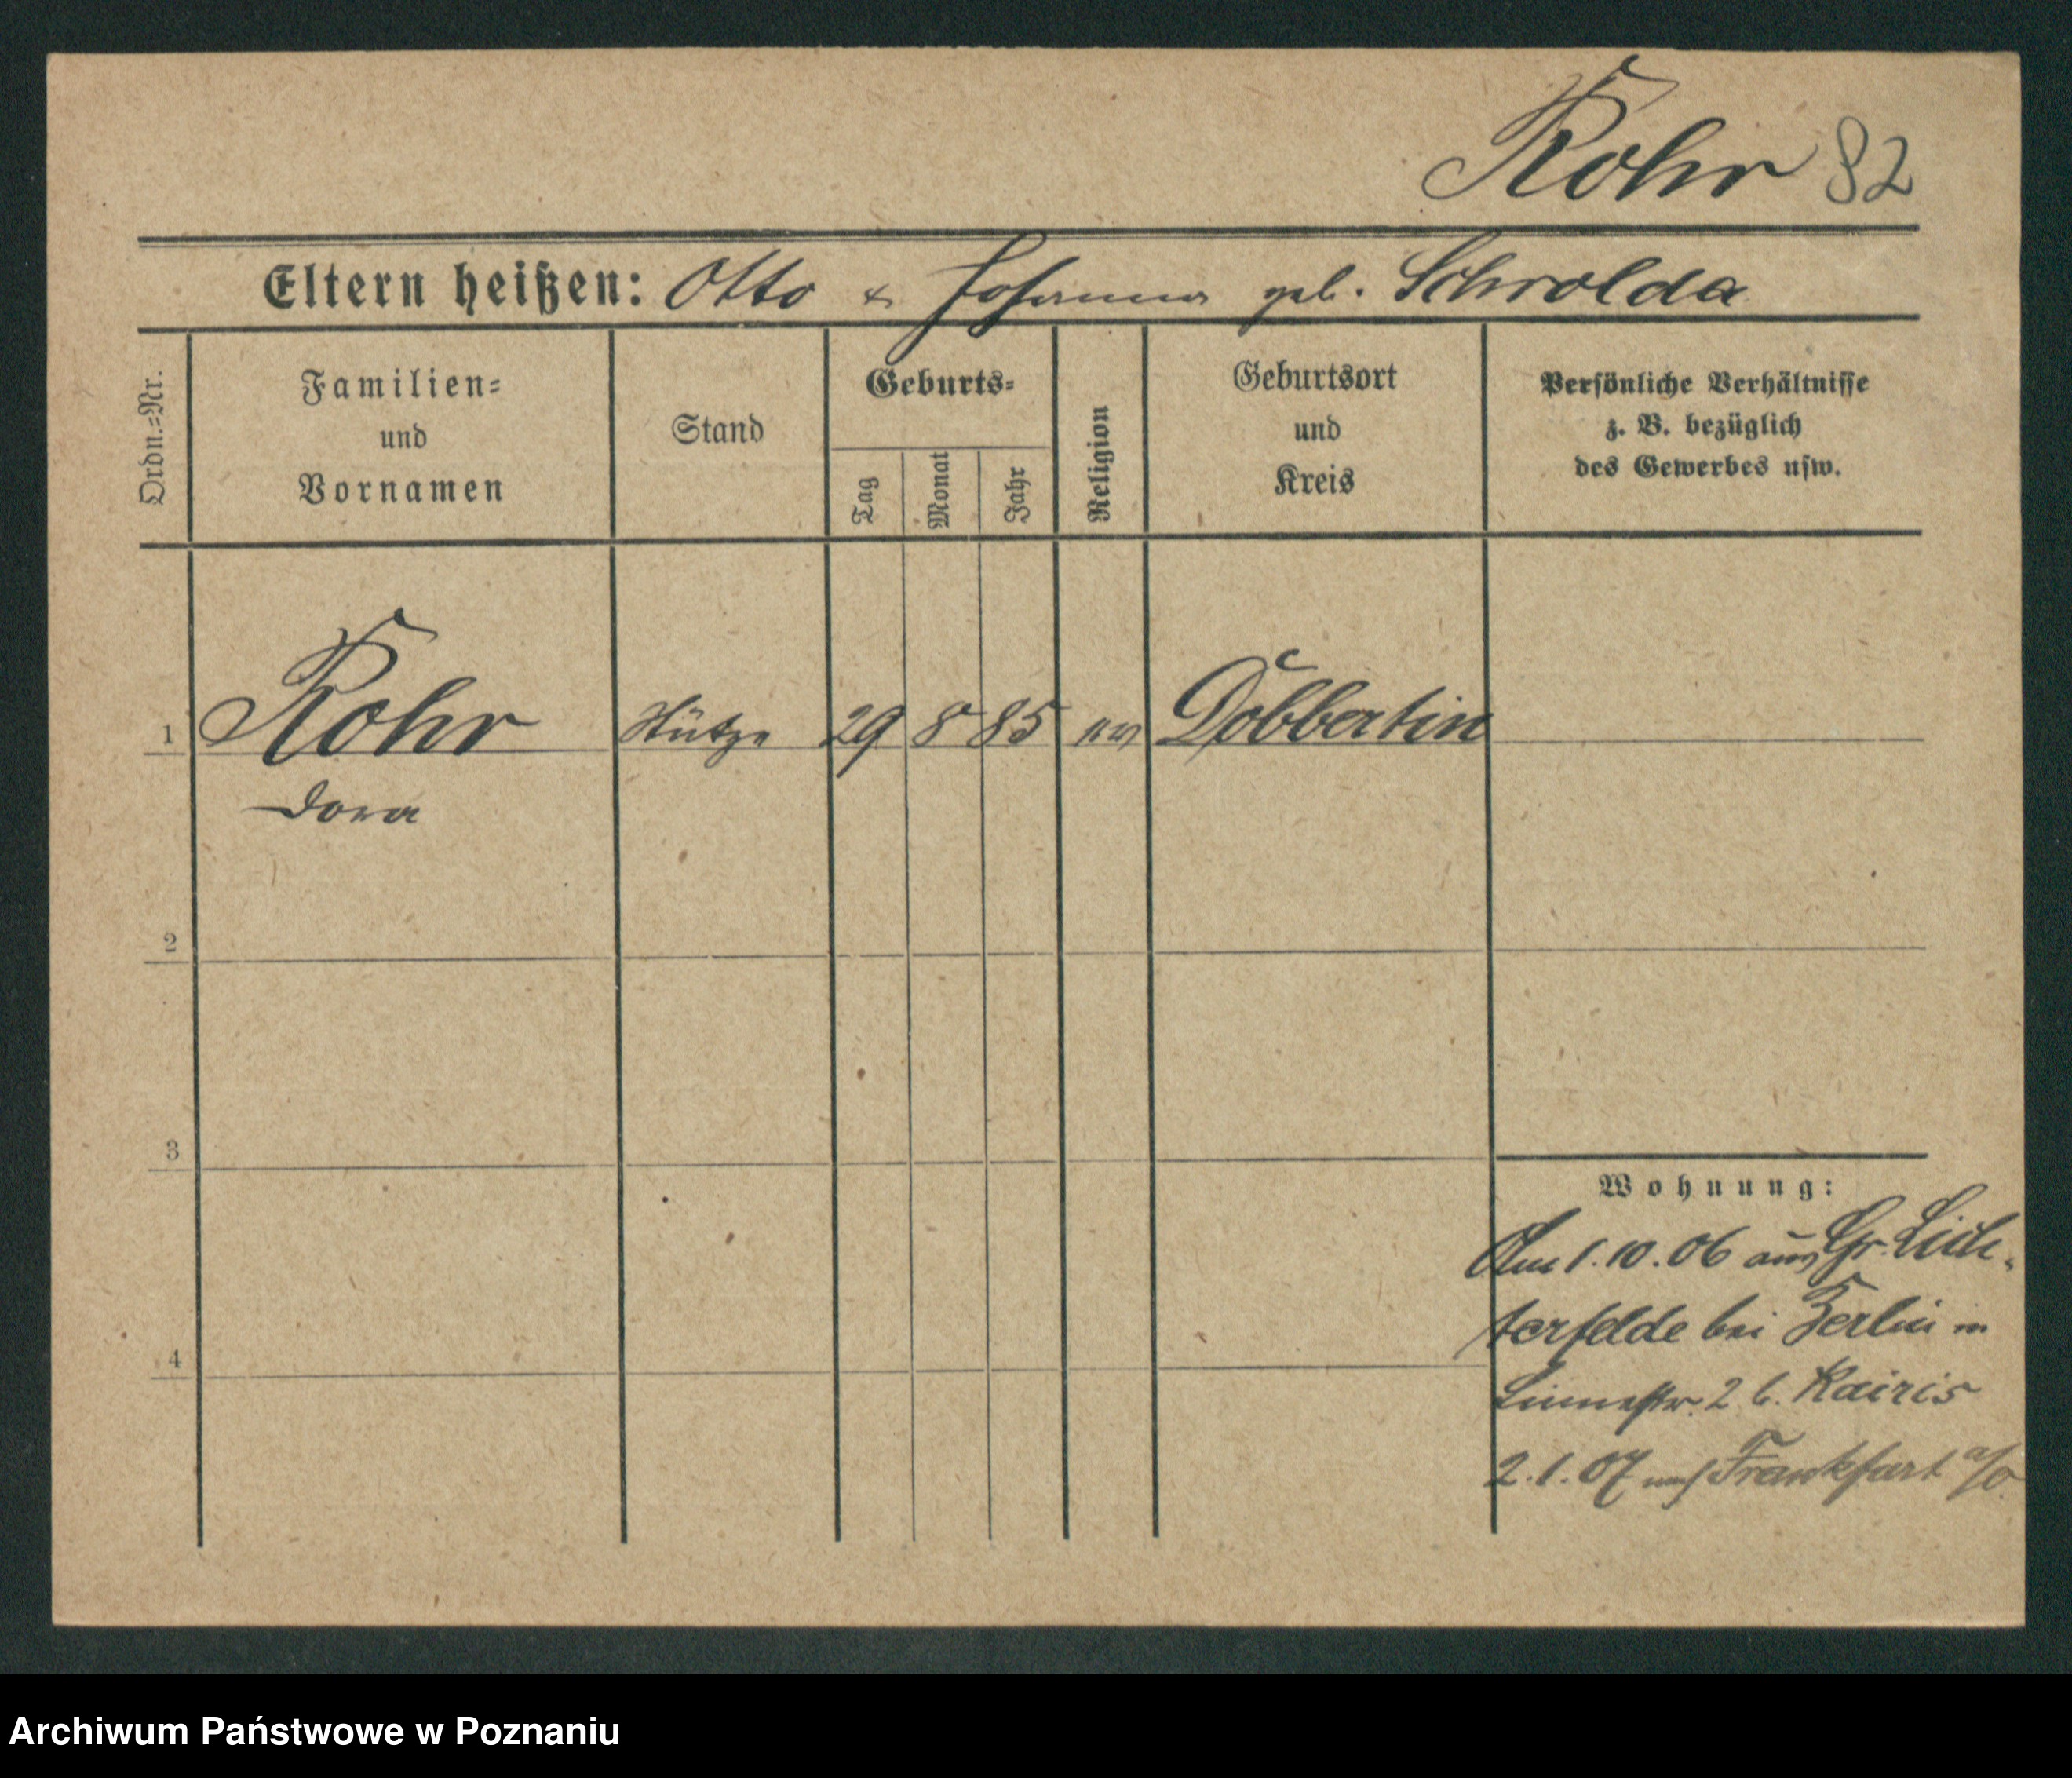 Rohr 82
Eltern heißen: Otto & Johanna geb. Schrolda
Ordn.=Nr.
Familien=
und
Vornamen
Stand
Geburts=
Tag
Monat
Jahr
Religion
Geburtsort
und
Kreis
Persönliche Verhältnisse
z. B. bezüglich
des Gewerbes usw.
1 Rohr Stütze 29 8 85 ev Dobbertin
Dora
2
3
4
Wohnung:
Am 1.10.06 aus Gr. Lich-
terfelde bei Berlin in
2 b. Kairis
2.1.07 nach Frankfurt a/O.
Archiwum Państwowe w Poznaniu